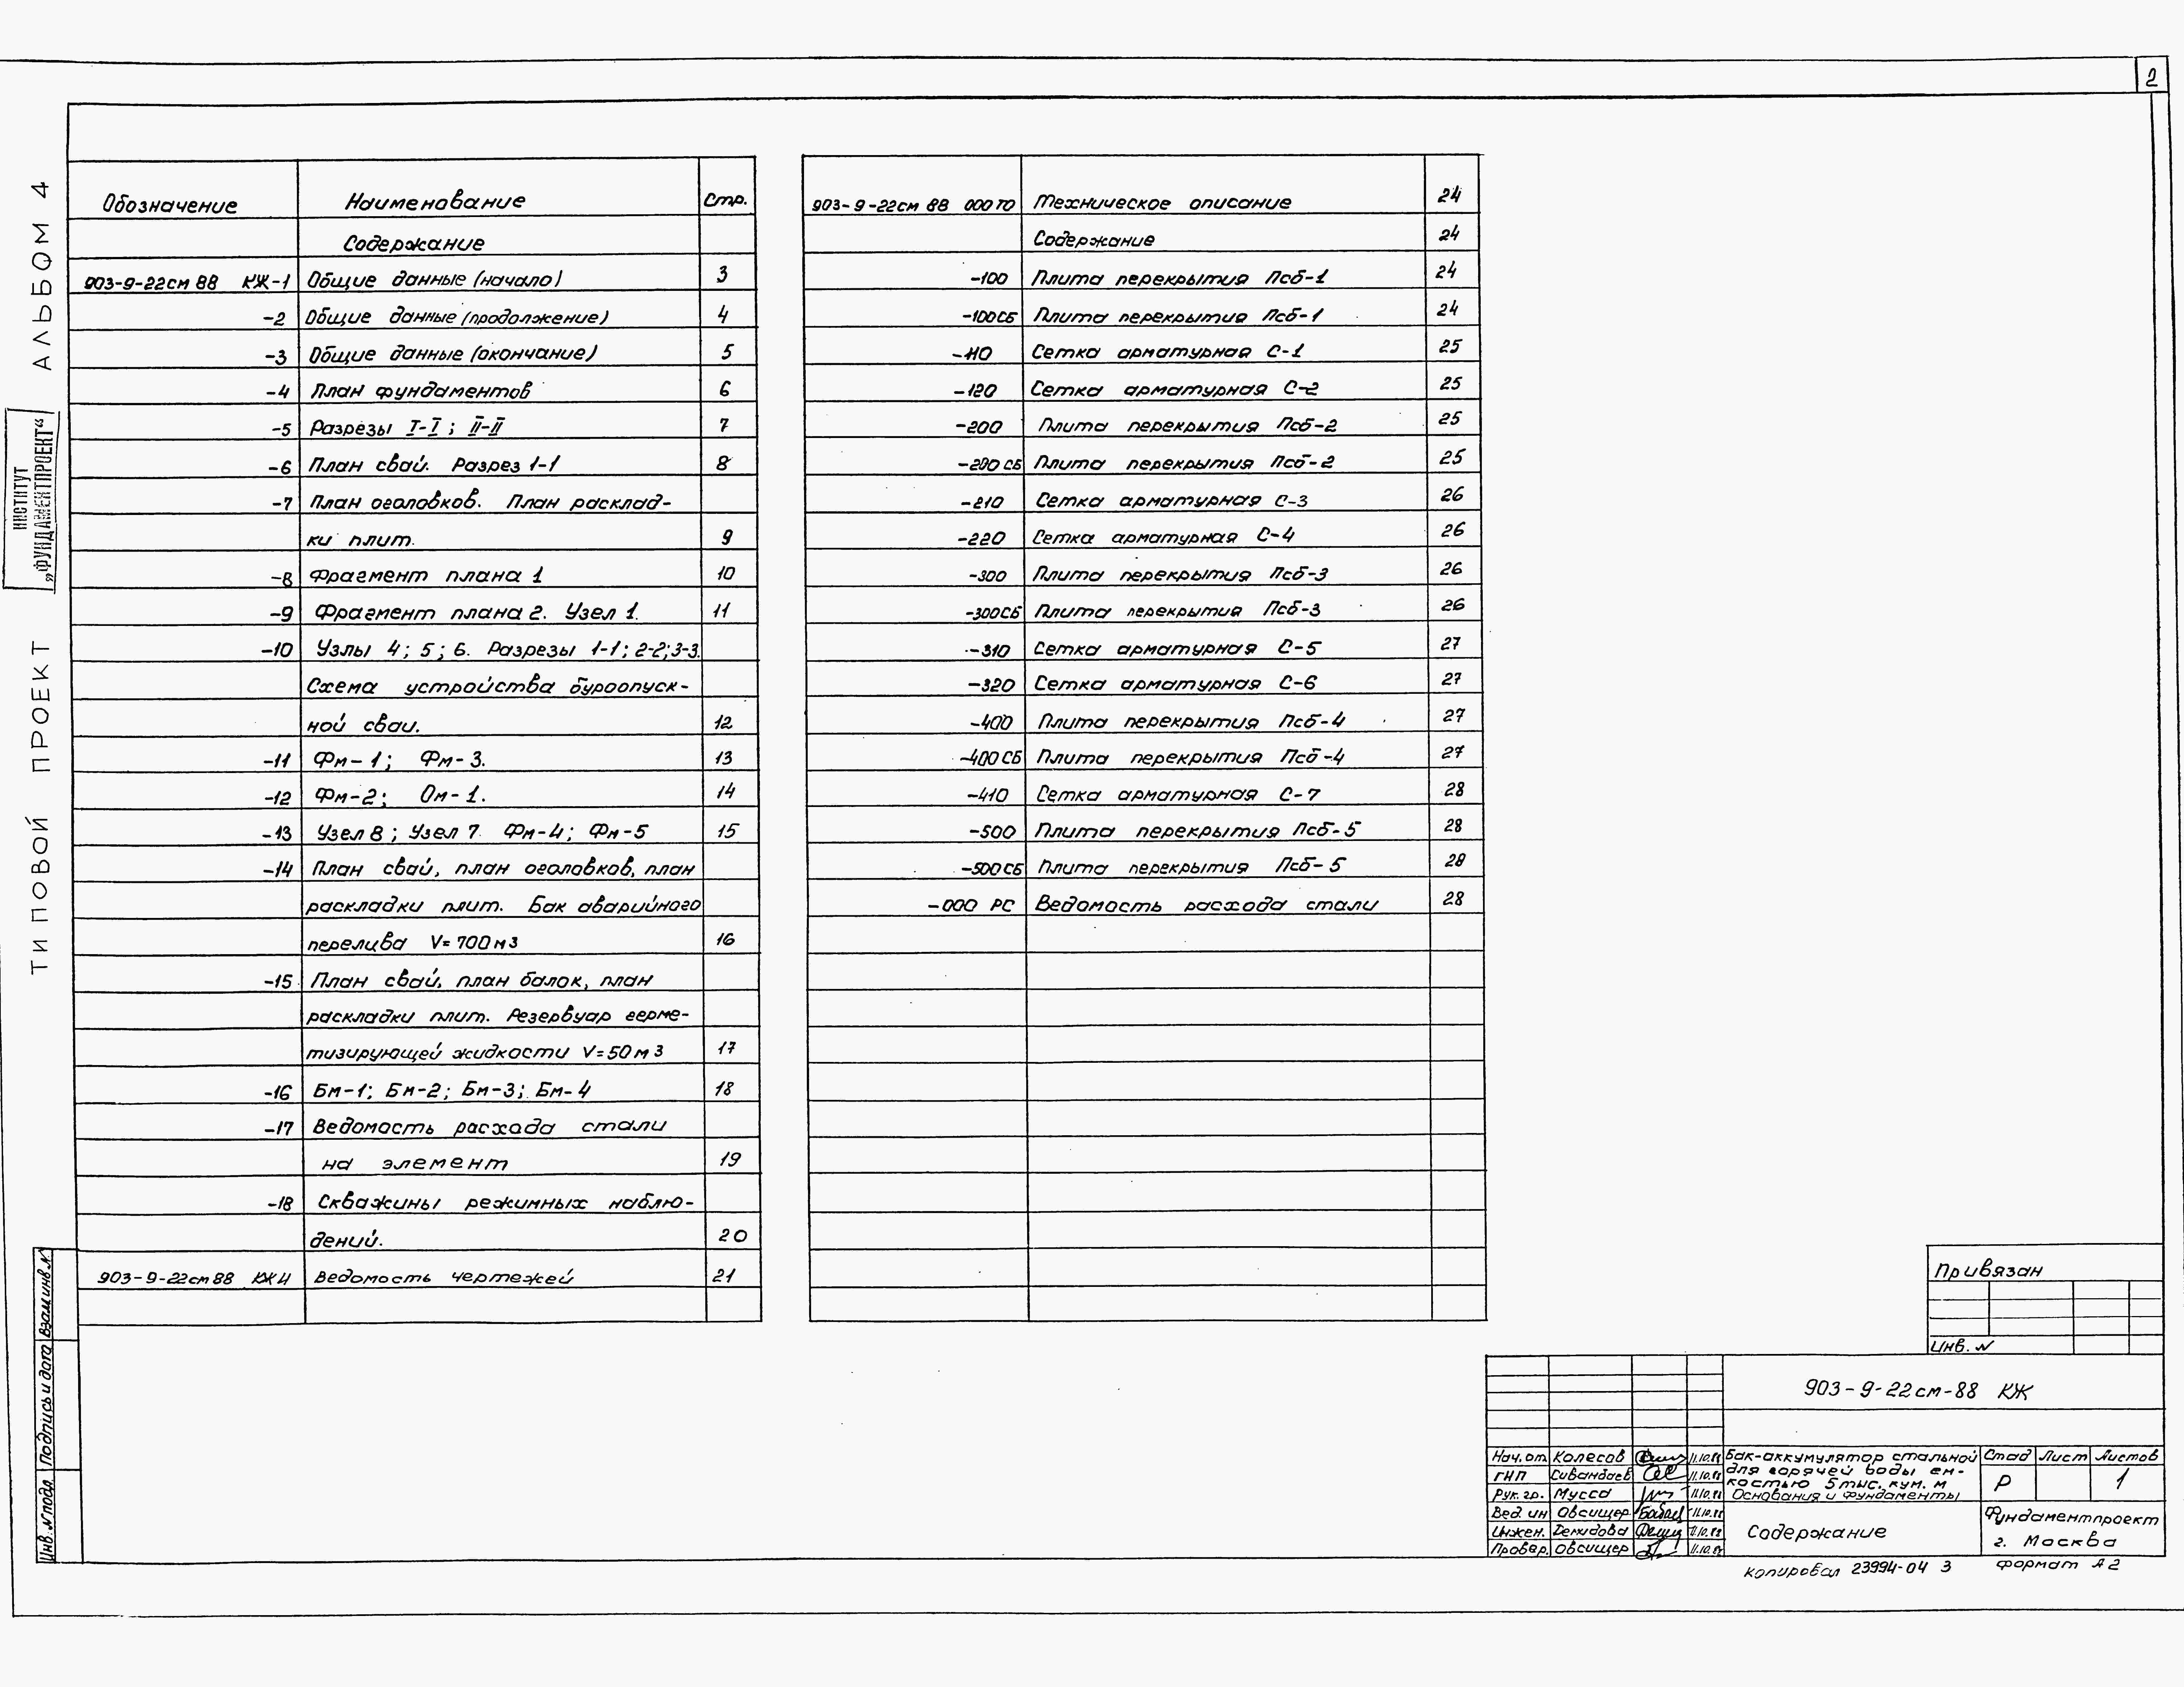 2
ТИПОВОЙ ПРОЕКТ АЛЬБОМ 4
ИНСТИТУТ
„ФУНДАМЕНТПРОЕКТ“
Обозначение Наименование Стр.
Содержание
903-9-22см 88 КЖ-1 Общие данные (начало) 3
-2 Общие данные (продолжение) 4
-3 Общие данные (окончание) 5
-4 План фундаментов 6
-5 Разрезы I-I; II-II 7
-6 План свай. Разрез 1-1 8
-7 План оголовков. План расклад-
ки плит. 9
-8 Фрагмент плана 1 10
-9 Фрагмент плана 2. Узел 1. 11
-10 Узлы 4; 5; 6. Разрезы 1-1; 2-2; 3-3.
Схема устройства буроопуск-
ной сваи. 12
-11 Фм-1; Фм-3. 13
-12 Фм-2; Ом-1. 14
-13 Узел 8; Узел 7. Фм-4; Фм-5 15
-14 План свай, план оголовков, план
раскладки плит. Бак аварийного
перелива V=700м3 16
-15 План свай, план балок, план
раскладки плит. Резервуар герме-
тизирующей жидкости V=50м3 17
-16 Бм-1; Бм-2; Бм-3; Бм-4 18
-17 Ведомость расхода стали
на элемент 19
-18 Скважины режимных наблю-
дений. 20
903-9-22см 88 КЖИ Ведомость чертежей 21
903-9-22см 88 000 ТО Техническое описание 24
Содержание 24
-100 Плита перекрытия Псб-1 24
-100СБ Плита перекрытия Псб-1 24
-110 Сетка арматурная С-1 25
-120 Сетка арматурная С-2 25
-200 Плита перекрытия Псб-2 25
-200 СБ Плита перекрытия Псб-2 25
-210 Сетка арматурная С-3 26
-220 Сетка арматурная С-4 26
-300 Плита перекрытия Псб-3 26
-300СБ Плита перекрытия Псб-3 26
-310 Сетка арматурная С-5 27
-320 Сетка арматурная С-6 27
-400 Плита перекрытия Псб-4 27
-400 СБ Плита перекрытия Псб-4 27
-410 Сетка арматурная С-7 28
-500 Плита перекрытия Псб-5 28
-500 СБ Плита перекрытия Псб-5 28
-000 РС Ведомость расхода стали 28
Инв. N подл. Подпись и дата Взам инв. N
Привязан
Инв. N
903-9-22см-88 КЖ
Нач. от Колесов 11.10.88
ГИП 11.10.88
Рук. гр. Мусса 11.10.88
Вед. ин Овсищер 11.10.88
Инжен. Демидова 11.10.88
Провер. Овсищер 11.10.88
Бак-аккумулятор стальной
для горячей воды ем-
костью 5 тыс. куб. м
Основания и фундаменты
Стад Лист Листов
Р 1
Содержание
Фундаментпроект
г. Москва
Копировал 23994-04 3 Формат А2